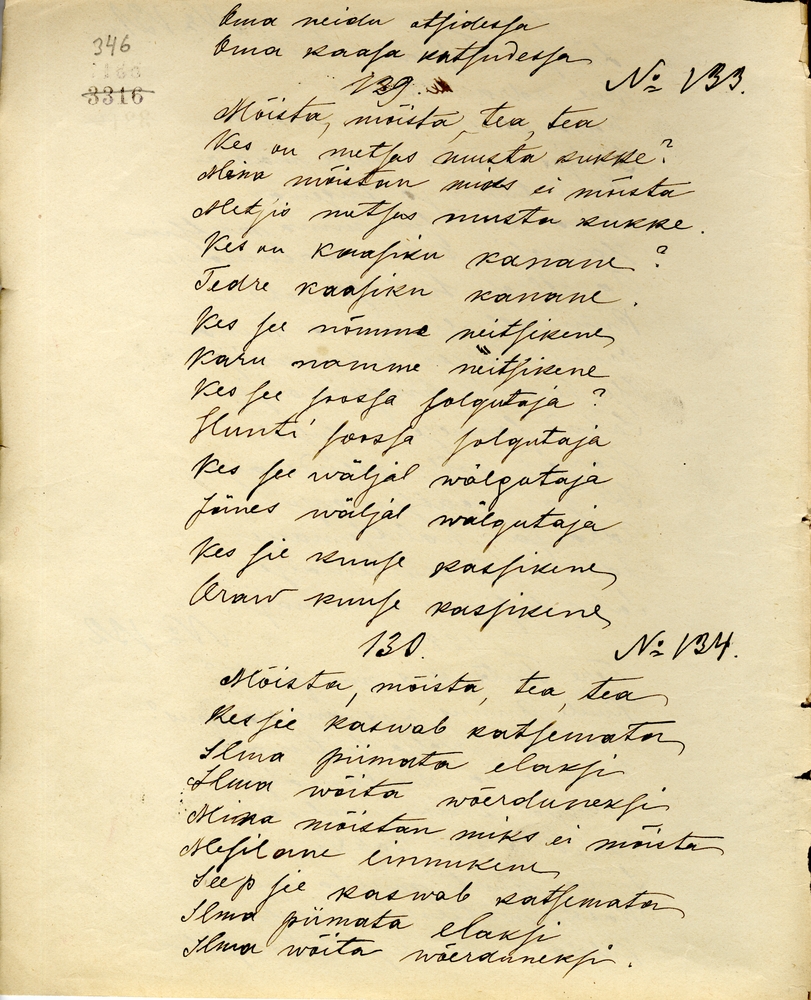 Oma neidu otsidessa
346
Oma kaasa katsudessa
3316
129. No 133.
Mõista, mõista, tea, tea
Kes on metsas musta kukke?
Mina mõistan miks ei mõista
Metsis metsas musta kukke.
Kes on kaasiku kanane?
Tedre kaasiku kanane.
Kes see nõmme neitsikene
Karu nõmme neitsikene
Kes see soossa solgutaja?
Hunti soossa solgutaja
Kes see wäljal wälgutaja
Jänes wäljal wälgutaja
Kes sie kuuse kassikene
Oraw kuuse kassikene
130. No 134.
Mõista, mõista, tea, tea
Kes sie kaswab katsemata
Ilma piimata elaksi
Ilma wõita wõerduneksi
Mina mõistan miks ei mõista
Mesilane linnukene
Seep sie kaswab katsemata
Ilma piimata elaksi
Ilma wõita wõerduneksi.